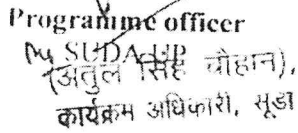 Programme officer
SUDA UP
(अतुल सिंह चौहान),
कार्यक्रम अधिकारी, सूडा